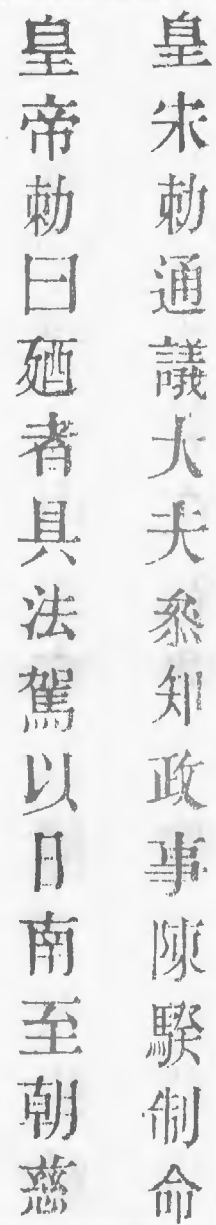 皇宋勅通議大夫叅知政事陳騤制命
皇帝勅曰廼者具法駕以日南至朝慈